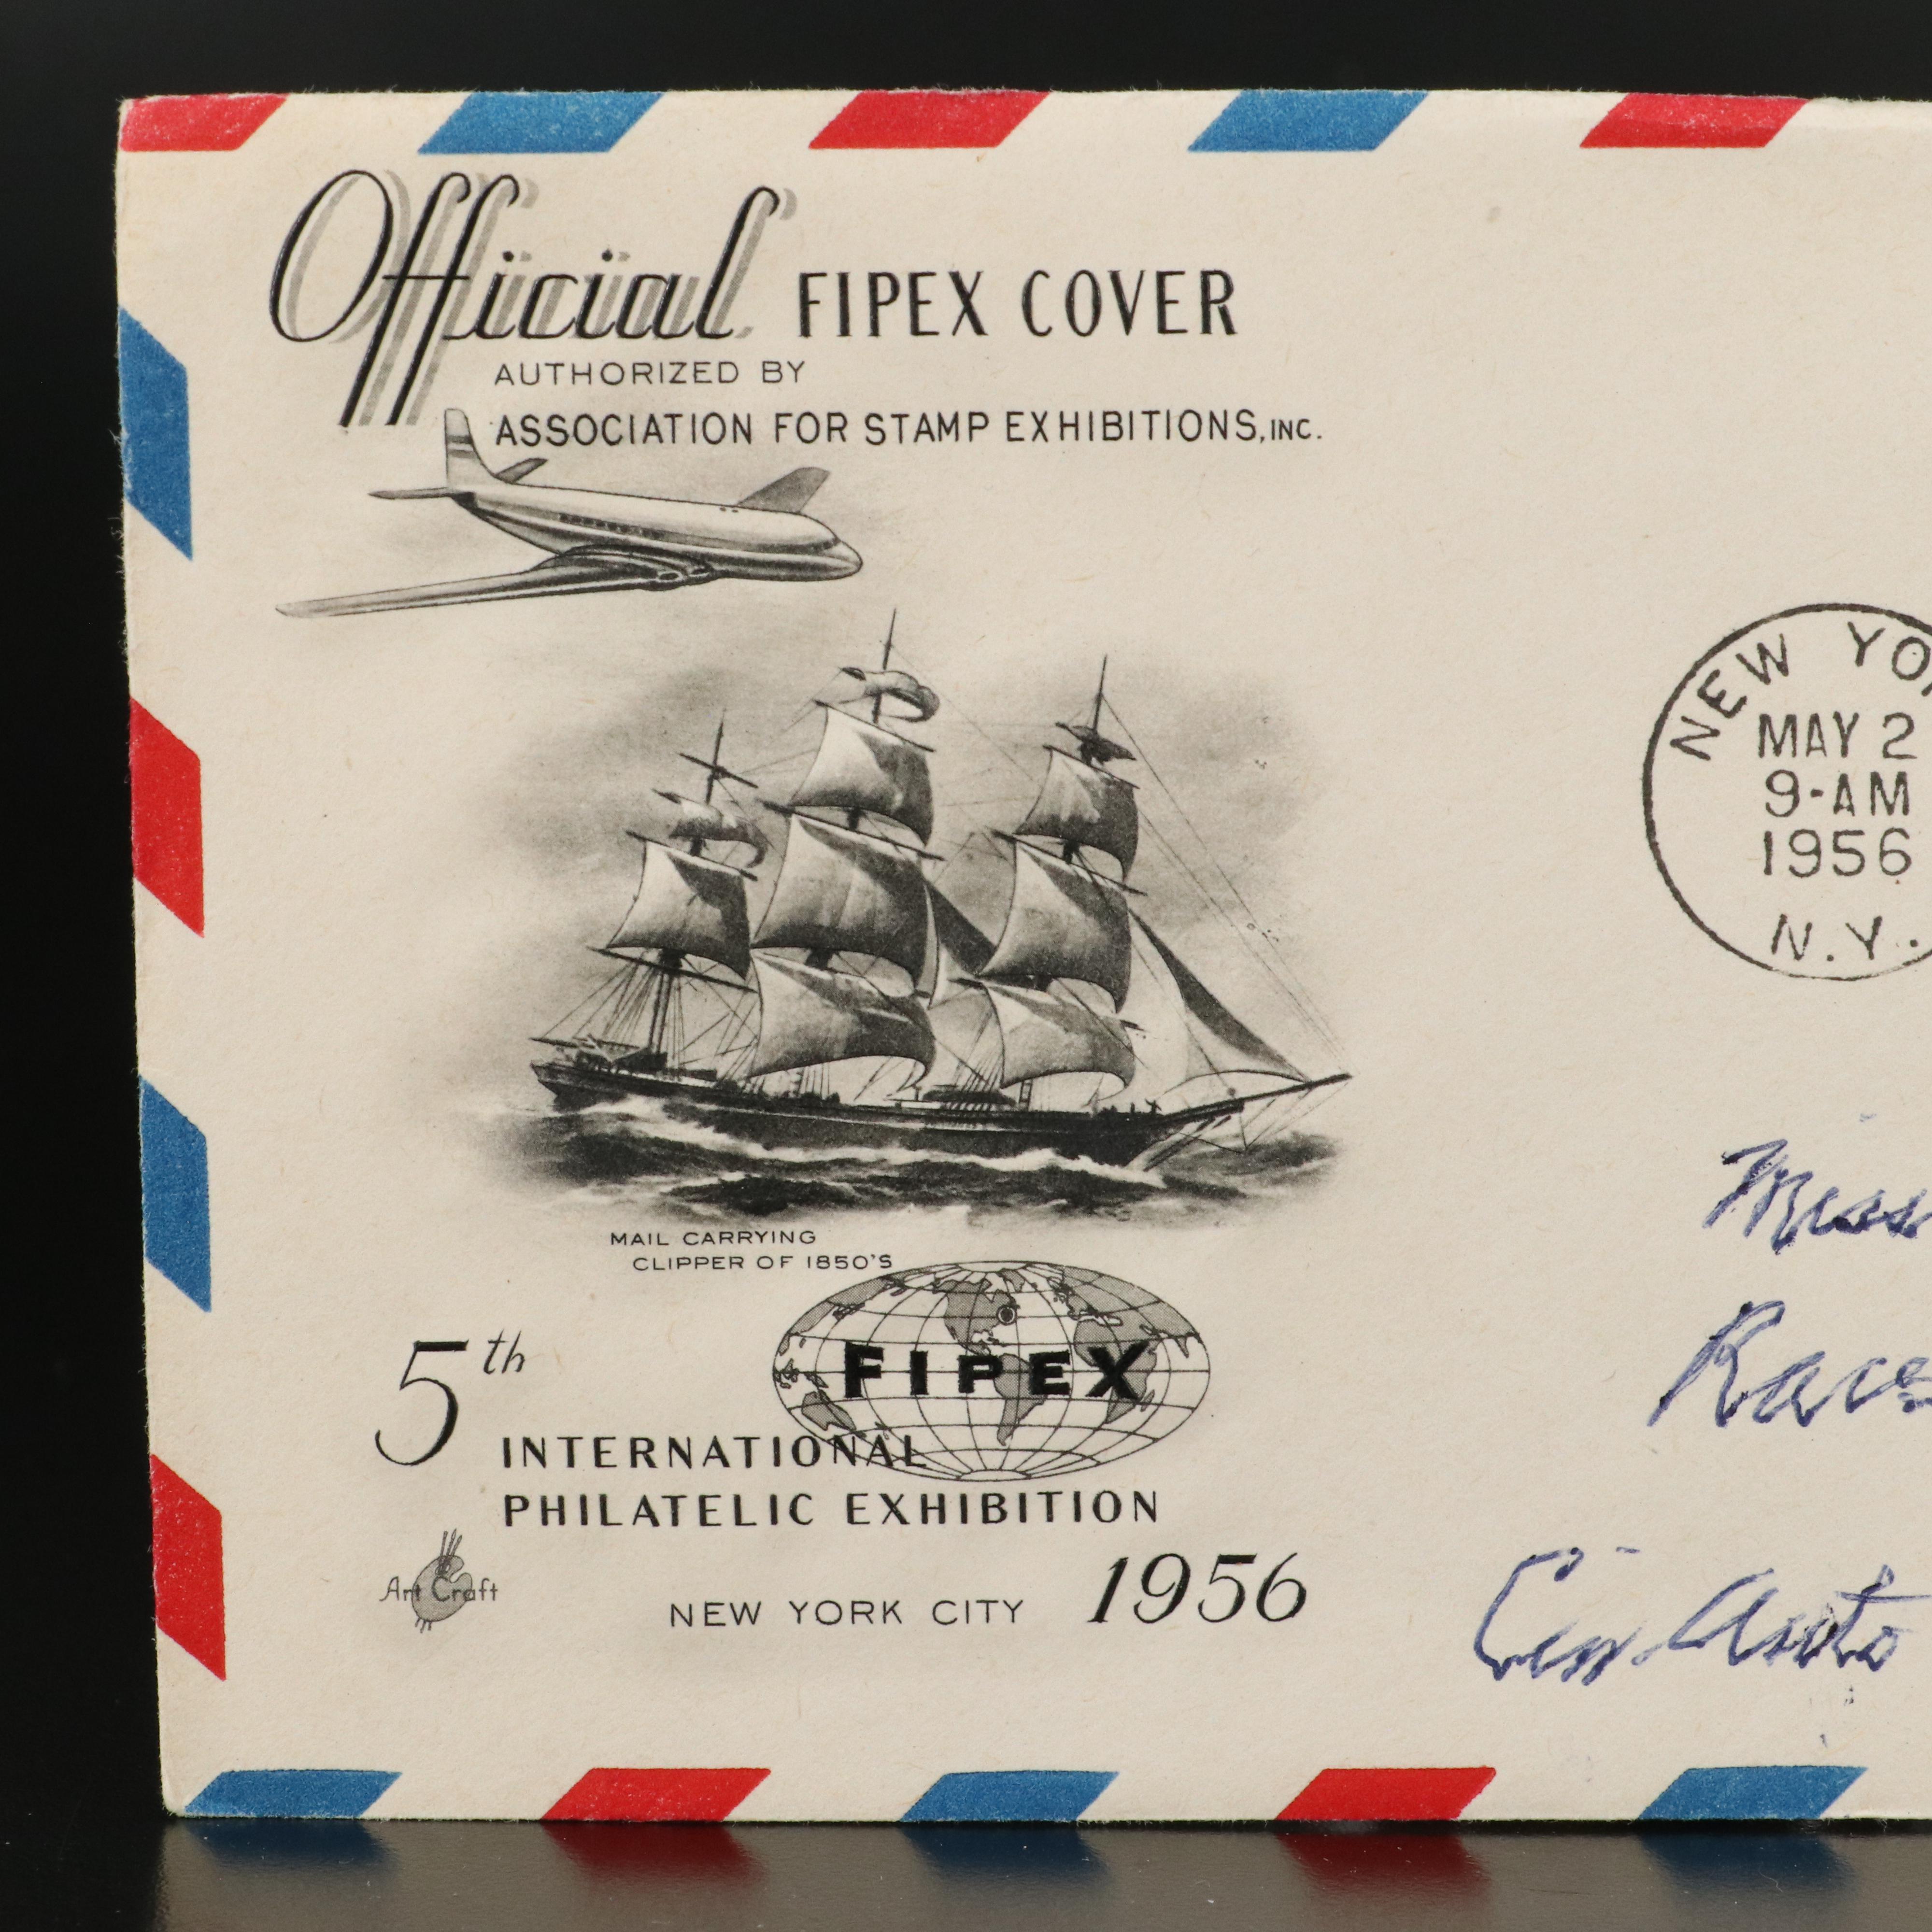 Official FIPEX COVER
AUTHORIZED BY
ASSOCIATION FOR STAMP EXHIBITIONS, INC.
NEW YO
MAY 2
9-AM
1956
N.Y.
MAIL CARRYING
CLIPPER OF 1850'S
Miss
FIPEX
5th
INTERNATIONAL
PHILATELIC EXHIBITION
Art Craft
NEW YORK CITY 1956